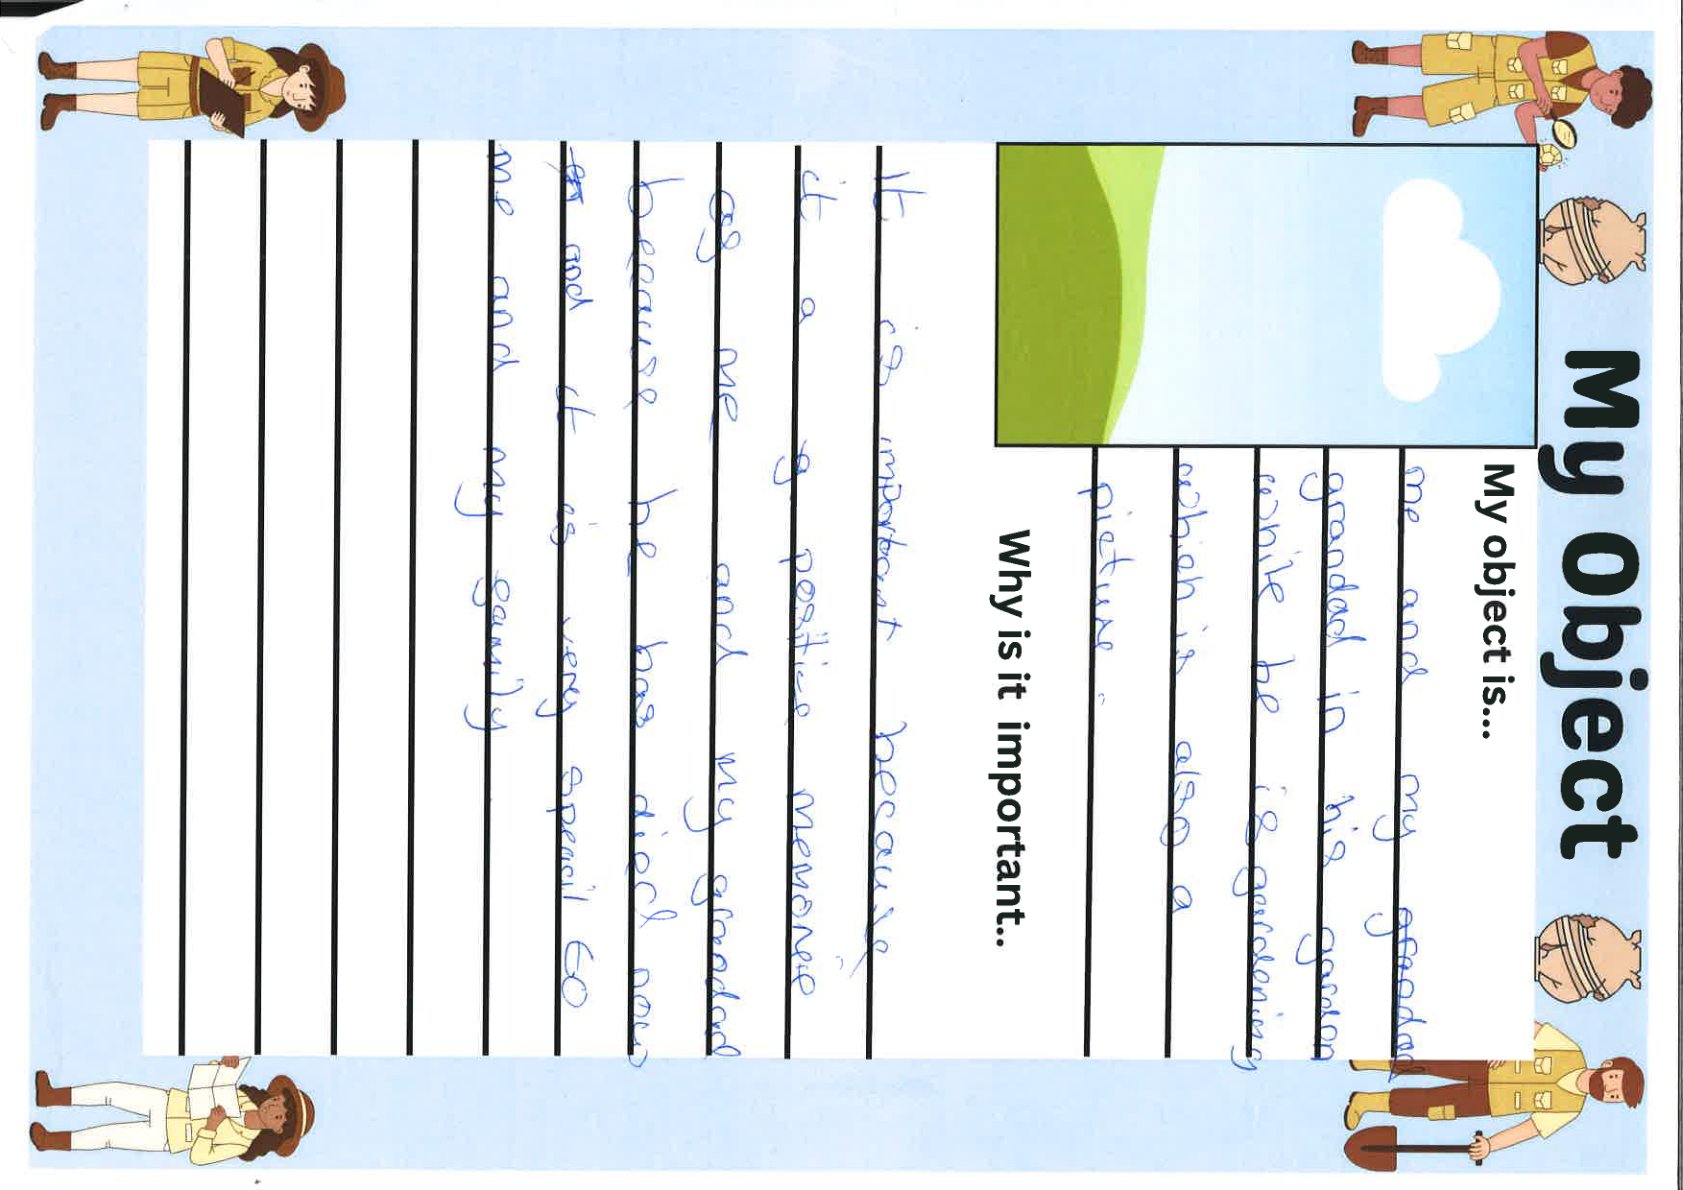 My Object
My object is...
me and my grandad
grandad in his garden
while he is gardening
which is also a
picture.
Why is it important..
It is important because
it a g positive memorie
of me and my grandad
because he has died now
and it is very speacil to
me and my family